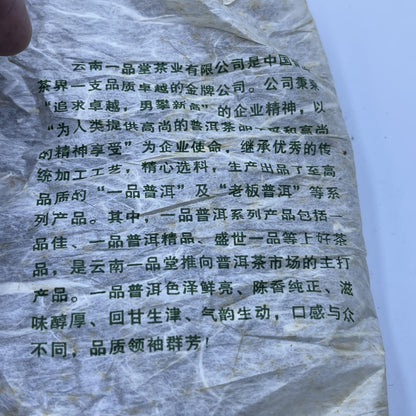 云南一品堂茶业有限公司是中国
茶界一支品质卓越的金牌公司。公司秉
“追求卓越，勇攀新高”的企业精神，以
“为人类提供高尚的普洱茶 和高尚
的精神享受”为企业使命，继承优秀的传
统加工工艺，精心选料，生产出品了至高
品质的“一品普洱”及“老板普洱”等系
列产品。其中，一品普洱系列产品包括一
品佳、一品普洱精品、盛世一品等上好茶
品，是云南一品堂推向普洱茶市场的主打
产品。一品普洱色泽鲜亮、陈香纯正、滋
味醇厚、回甘生津、气韵生动，口感与众
不同，品质领袖群芳！